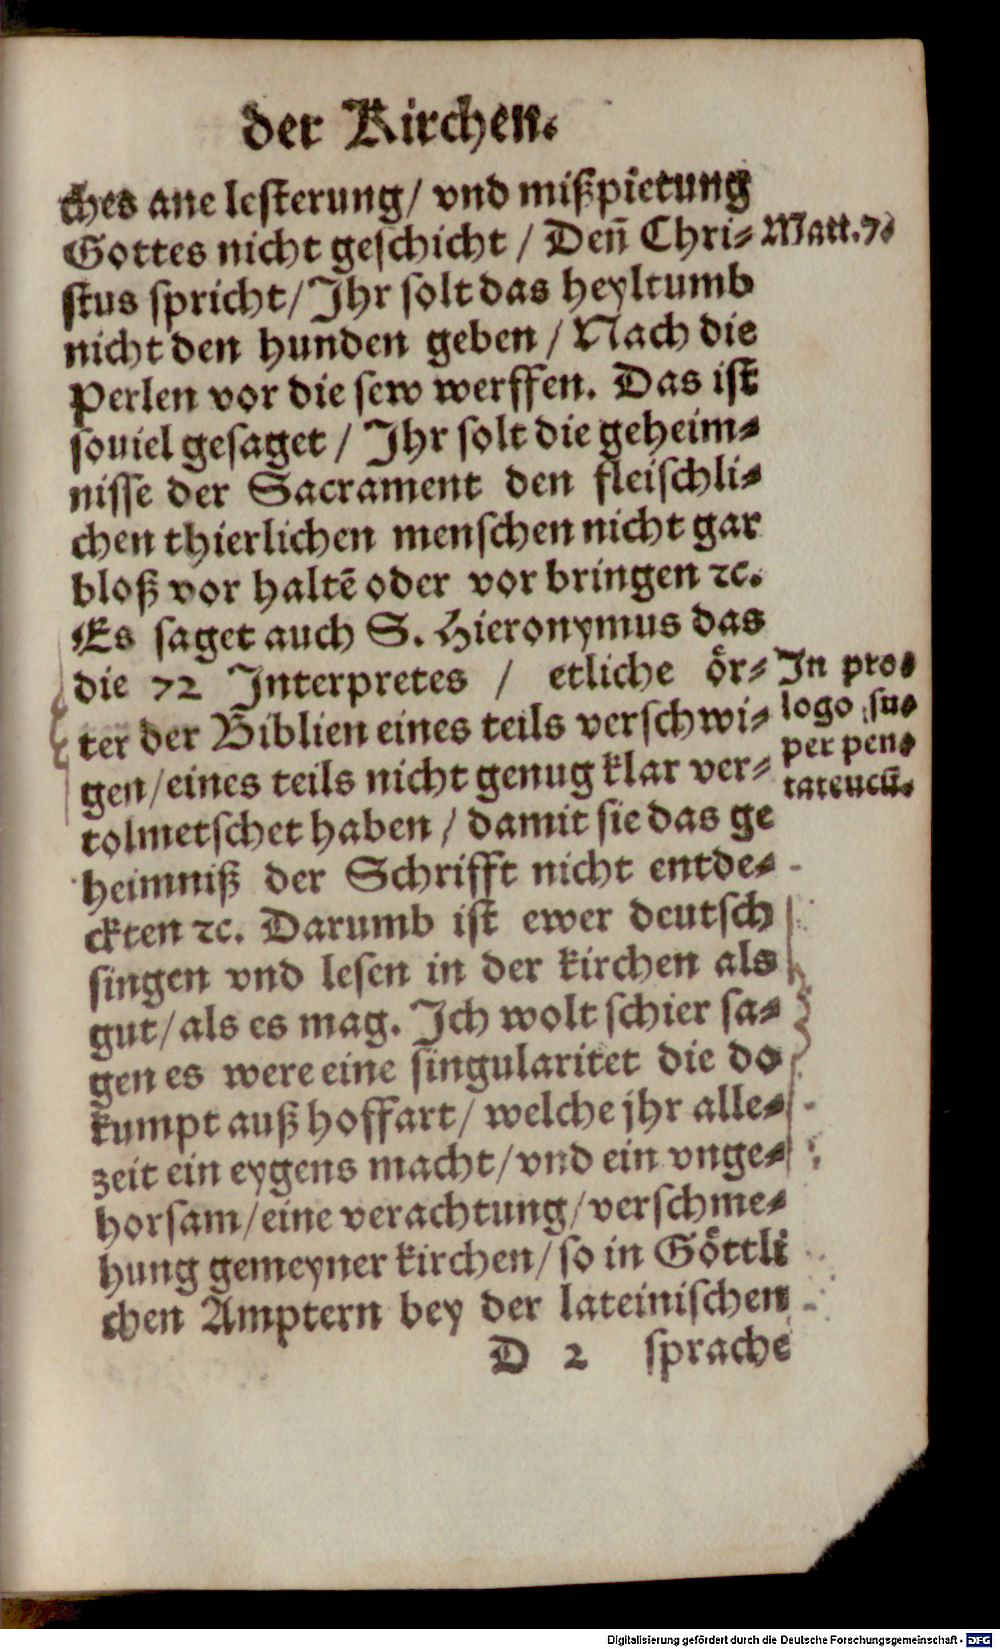 der Kirchen.
ches ane lesterung/ vnd mißpietung
Gottes nicht geschicht / Deñ Chri-
Matt.7.
stus spricht/ Jhr solt das heyltumb
nicht den hunden geben / Nach die
Perlen vor die sew werffen. Das ist
souiel gesaget / Jhr solt die geheim-
nisse der Sacrament den fleischli-
chen thierlichen menschen nicht gar
bloß vor haltẽ oder vor bringen ꝛc.
Es saget auch S. Hieronymus das
die 72 Interpretes / etliche oͤr-
ter der Biblien eines teils verschwi-
gen/eines teils nicht genug klar ver-
In pro-
logo su-
per pen-
tateucũ.
tolmetschet haben / damit sie das ge
heimniß der Schrifft nicht entde-
ckten ꝛc. Darumb ist ewer deutsch
singen vnd lesen in der kirchen als
gut/als es mag. Ich wolt schier sa-
gen es were eine singularitet die do
kumpt auß hoffart/ welche jhr alle-
zeit ein eygens macht/vnd ein vnge-
horsam/eine verachtung/verschme-
hung gemeyner kirchen/so in Goͤttli
chen Amptern bey der lateinischen
D 2 sprache
Digitalisierung gefördert durch die Deutsche Forschungsgemeinschaft - DFG